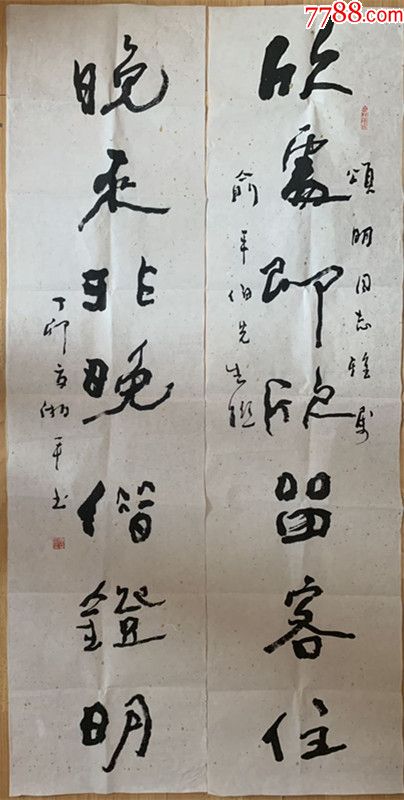 7788.com
欣處即留客住
頌明同志雅屬
俞平伯先生聯
晚來非晚借鐙明
丁卯平書